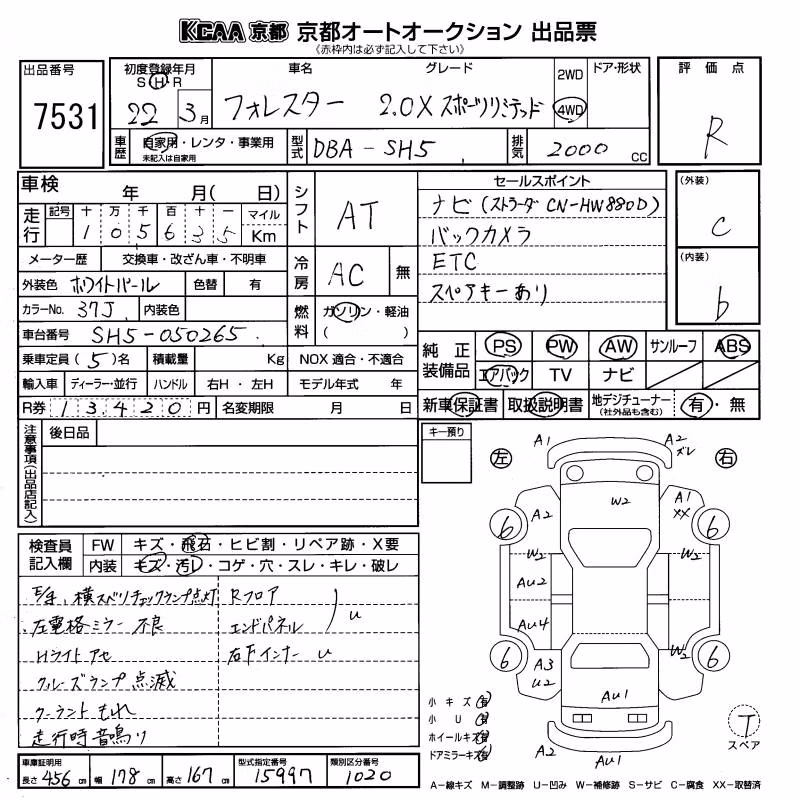 KCAA 京都 京都オートオークション 出品票
(赤枠内は必ず記入して下さい)
出品番号
7531
初度登録年月
S H R
22 3月
車名
フォレスター
グレード
2.0X スポーツリミテッド
2WD
4WD
ドア・形状
評価点
R
車歴
自家用・レンタ・事業用
未記入は自家用
型式
DBA-SH5
排気
2000 CC
車検 年 月( 日)
走行
記号 十 万 千 百 十 一 マイル
1 0 5 6 3 5 Km
メーター歴 交換車・改ざん車・不明車
外装色 ホワイトパール 色替 有
カラーNo. 37J 内装色
車台番号 SH5-050265
乗車定員 (5)名 積載量 Kg
輸入車 ディーラー・並行 ハンドル 右H・左H
R券 13,420円 名変期限 月 日
シフト AT
冷房 AC 無
燃料 ガソリン・軽油
( )
NOX 適合・不適合
モデル年式 年
セールスポイント
ナビ(ストラーダ CN-HW880D)
バックカメラ
ETC
スペアキーあり
(外装)
C
(内装)
b
純正装備品
PS PW AW サンルーフ ABS
エアバック TV ナビ
新車保証書 取扱説明書 地デジチューナー
(社外品も含む) 有・無
注意事項(出品店記入)
後日品
キー預り
検査員記入欄
FW キズ・飛石・ヒビ割・リペア跡・X要
内装 キズ・汚レ・コゲ・穴・スレ・キレ・破レ
横スベリチェックランプ点灯
左電格ミラー不良
Hライトアセ
クルーズランプ点滅
クーラントもれ
走行時音鳴り
Rフロア
エンドパネル
U
右下インナー U
左
右
A1
A2
ズレ
W2
A2
A1
XX
6
6
W2
W2
AU2
AU4
6
6
A3
U2
W2
AU1
A2
AU1
小キズ 有
小U 有
ホイールキズ 有
ドアミラーキズ 有
T
スペア
車庫証明用
長さ 456cm 幅 178cm 高さ 167cm
型式指定番号
15997
類別区分番号
1020
A−線キズ M−調整跡 U−凹み W−補修跡 S−サビ C−腐食 XX−取替済